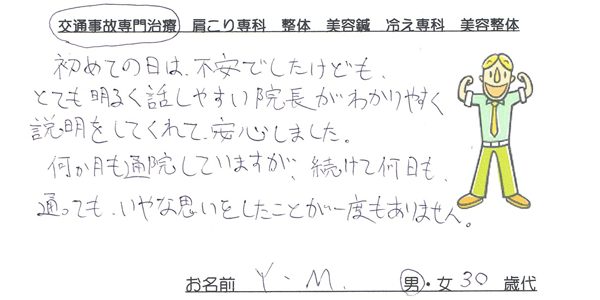 交通事故専門治療 肩こり専科 整体 美容鍼 冷え専科 美容整体
初めての日は、不安でしたけども、
とても明るく話しやすい院長がわかりやすく
説明をしてくれて、安心しました。
何か月も通院していますが、続けて何日も、
通っても、いやな思いをしたことが一度もありません。
お名前 Y・M. 男・女 30 歳代